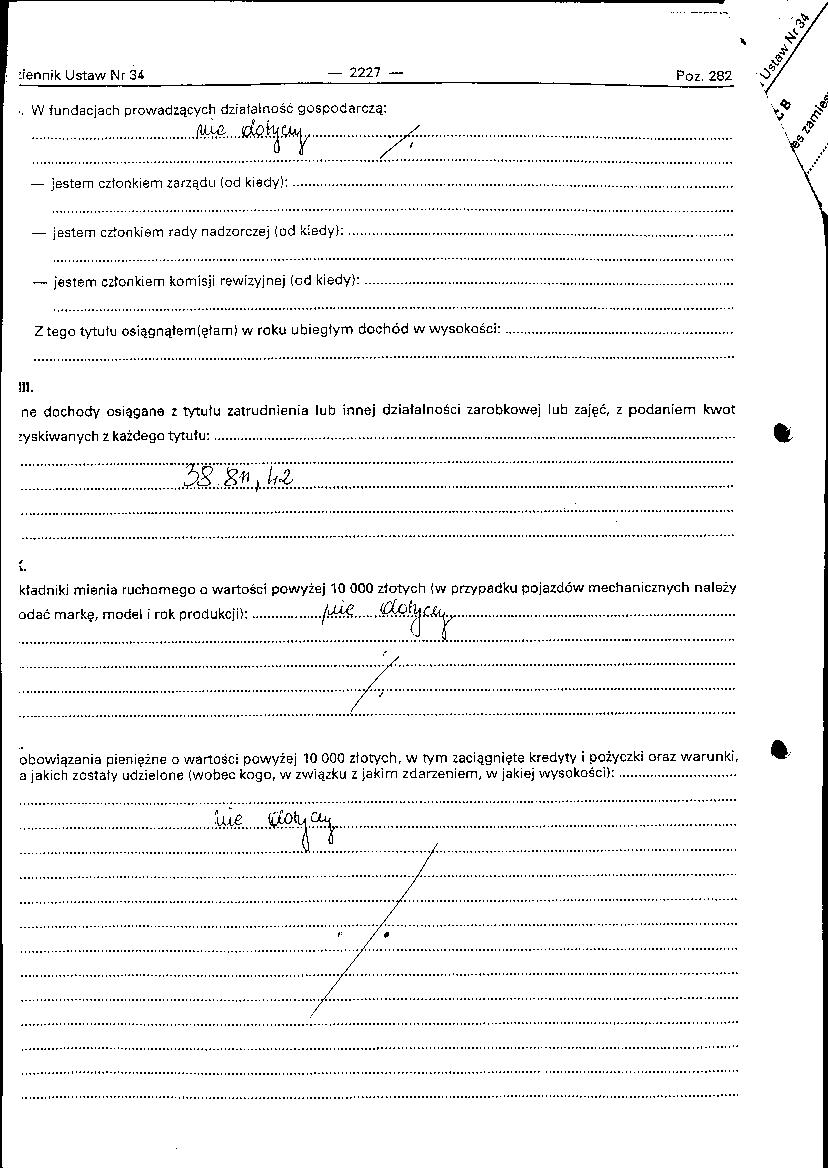 ziennik Ustaw Nr 34 — 2227 — Poz. 282
. W fundacjach prowadzących działalność gospodarczą:
nie dotyczy
— jestem członkiem zarządu (od kiedy):
— jestem członkiem rady nadzorczej (od kiedy):
— jestem członkiem komisji rewizyjnej (od kiedy):
Z tego tytułu osiągnąłem(ęłam) w roku ubiegłym dochód w wysokości:
III.
ne dochody osiągane z tytułu zatrudnienia lub innej działalności zarobkowej lub zajęć, z podaniem kwot
zyskiwanych z każdego tytułu:
38 811,42
kładniki mienia ruchomego o wartości powyżej 10 000 złotych (w przypadku pojazdów mechanicznych należy
odać markę, model i rok produkcji): nie dotyczy
obowiązania pieniężne o wartości powyżej 10 000 złotych, w tym zaciągnięte kredyty i pożyczki oraz warunki,
a jakich zostały udzielone (wobec kogo, w związku z jakim zdarzeniem, w jakiej wysokości):
nie dotyczy
Ustaw Nr 34
B
es zamies